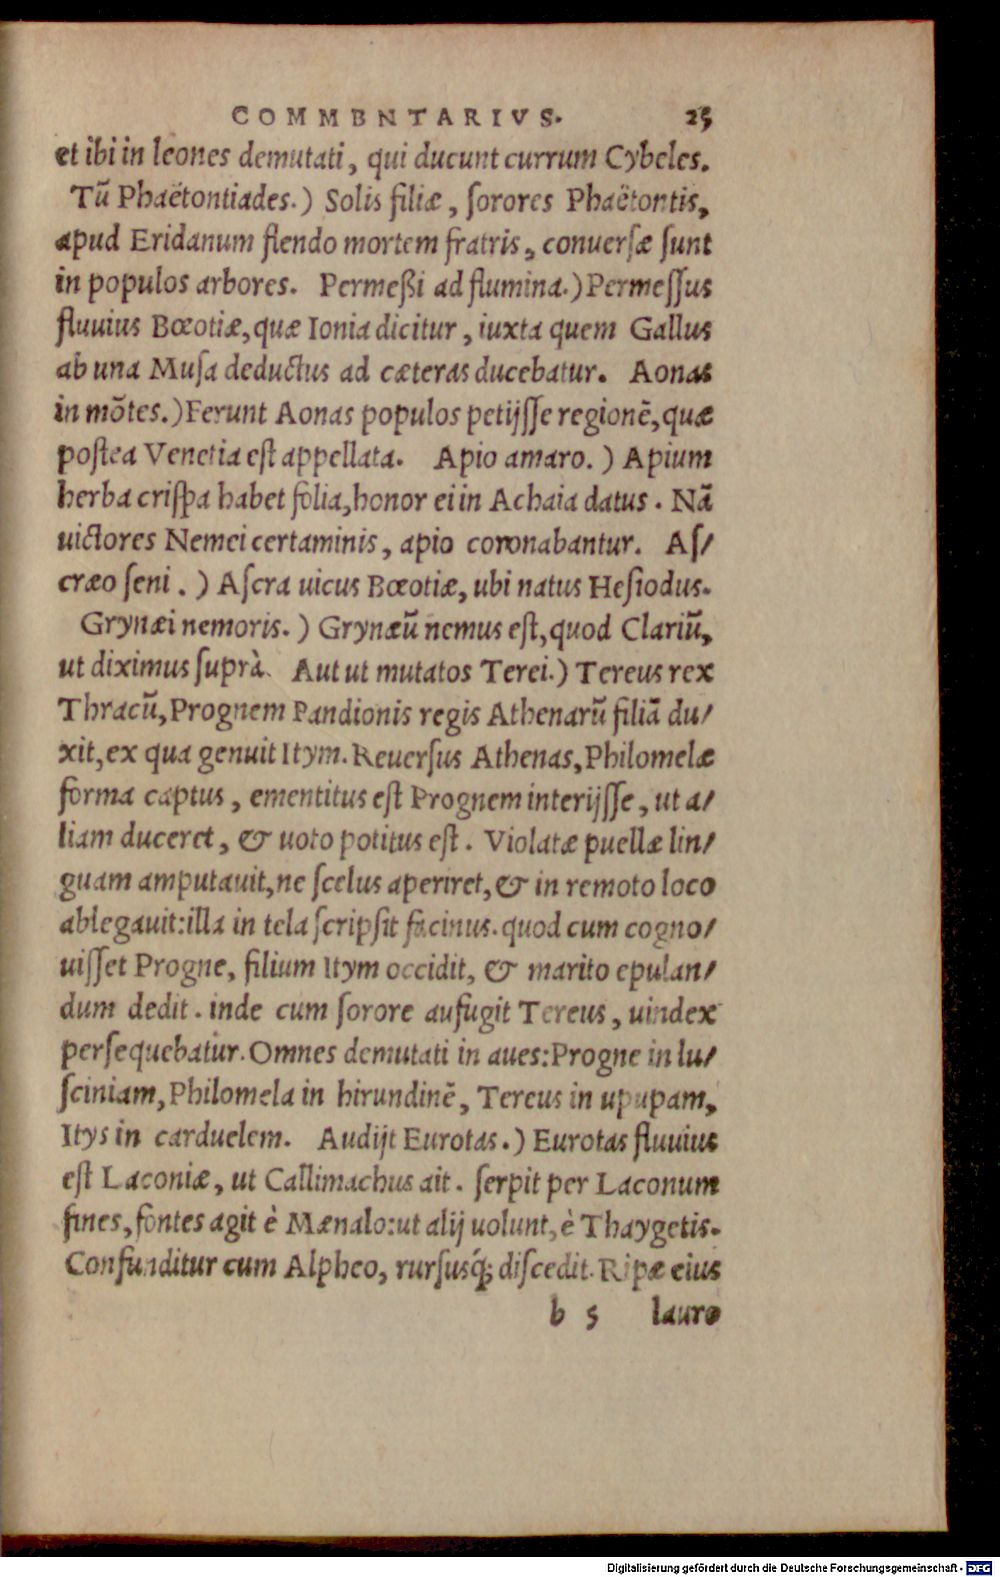 COMMENTARIVS. 25
et ibi in leones demutati, qui ducunt currum Cybeles.
Tū Phaëtontiades.) Solis filiæ, ſorores Phaëtontis,
apud Eridanum flendo mortem fratris, conuerſæ ſunt
in populos arbores. Permeßi ad flumina.) Permeſſus
fluuius Bœotiæ, quæ Ionia dicitur, iuxta quem Gallus
ab una Muſa deductus ad cæteras ducebatur. Aonas
in mōtes.) Ferunt Aonas populos petijſſe regionē, quæ
poſtea Venetia eſt appellata. Apio amaro.) Apium
herba criſpa habet folia, honor ei in Achaia datus. Nā
uictores Nemei certaminis, apio coronabantur. Aſ/
cræo ſeni.) Aſcra uicus Bœotiæ, ubi natus Heſiodus.
Grynæi nemoris.) Grynæū nemus eſt, quod Clariū,
ut diximus ſuprà. Aut ut mutatos Terei.) Tereus rex
Thracū, Prognem Pandionis regis Athenarū filiā du/
xit, ex qua genuit Itym. Reuerſus Athenas, Philomelæ
forma captus, ementitus eſt Prognem interijſſe, ut a/
liam duceret, & uoto potitus eſt. Violatæ puellæ lin/
guam amputauit, ne ſcelus aperiret, & in remoto loco
ablegauit: illa in tela ſcripſit facinus. quod cum cogno/
uiſſet Progne, filium Itym occidit, & marito epulan/
dum dedit. inde cum ſorore aufugit Tereus, uindex
perſequebatur. Omnes demutati in aues: Progne in lu/
ſciniam, Philomela in hirundinē, Tereus in upupam,
Itys in carduelem. Audijt Eurotas.) Eurotas fluuius
eſt Laconiæ, ut Callimachus ait. ſerpit per Laconum
fines, fontes agit è Mænalo: ut alij uolunt, è Thaygetis.
Confunditur cum Alpheo, rurſusq́; diſcedit. Ripæ eius
b 5 lauro
Digitalisierung gefördert durch die Deutsche Forschungsgemeinschaft - DFG